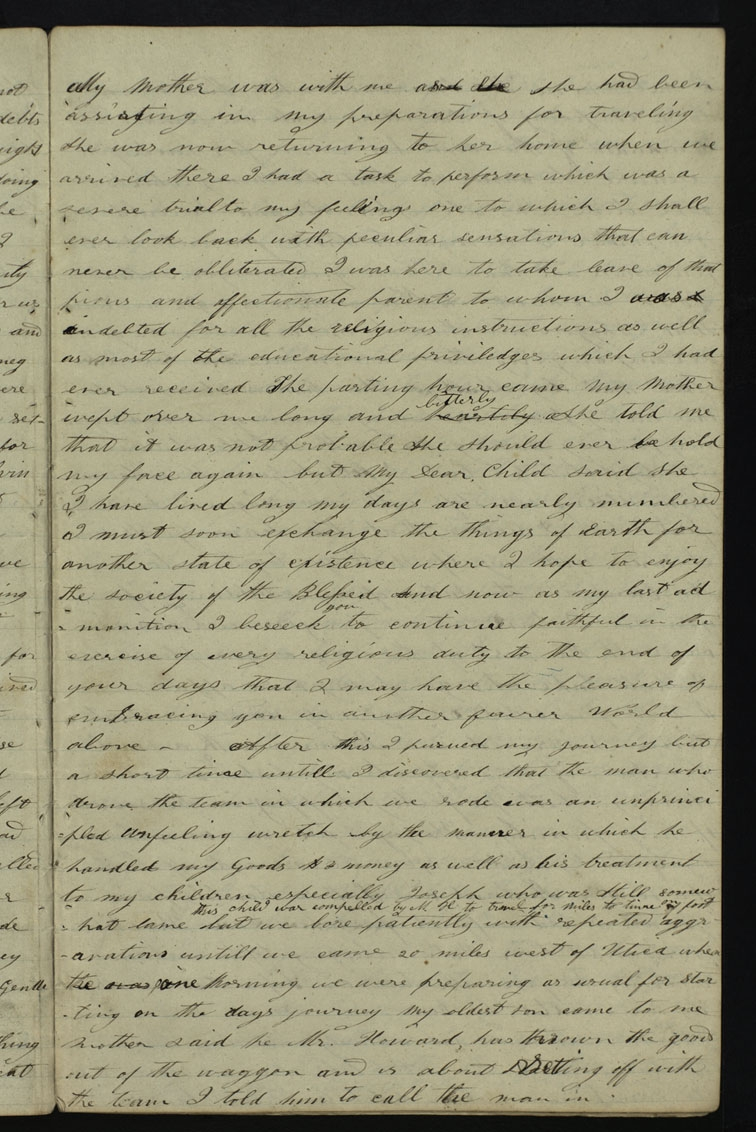 not
debts
ally Mother was with me and she she had been
assisting in my preparations for traveling
she was now returning to her home when we
arrived there I had a task to perform which was a
severe trial to my feelings one to which I shall
ever look back with peculiar sensations that can
never be obliterated I was here to take leave of that
pious and affectionate parent to whom I was
indebted for all the religious instructions as well
as most of the educational priviledges which I had
ever received The parting hour came My Mother
bitterly
wept over me long and heartily She told me
that it was not probable she should ever be hold
my face again but My Dear Child said she
I have lived long my days are nearly numbered
I must soon exchange the things of Earth for
another state of existence where I hope to enjoy
the society of the Blessed And now as my last ad
you
-monition I beseech to continue faithful in the
exercise of every religious duty to the end of
your days that I may have the pleasure of
embracing you in another fairer World
above - After this I pursued my journey but
a short time untill I discovered that the man who
drove the team in which we rode was an unprinci
-pled unfeeling wretch by the manner in which he
handled my Goods & money as well as his treatment
to my children especially Joseph who was still somew
this child was compelled by Mr H to travel for miles to time on foot
-hat lame but we bore patiently with repeated aggr-
-avations untill we came 20 miles west of Utica when
the was one Morning we were preparing as usual for Star
-ting on the days journey My oldest son came to me
Mother said he Mr. Howard, has thrown the goods
out of the waggon and is about Setting off with
the team I told him to call the man in